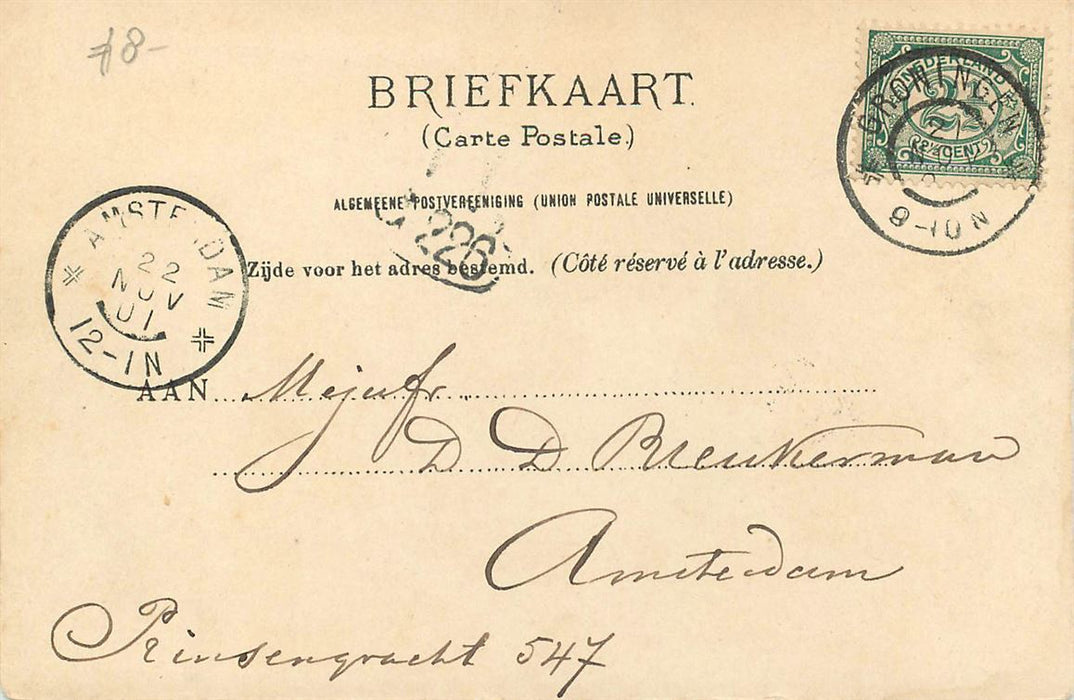 18-
BRIEFKAART.
(Carte Postale.)
ALGEMEENE POSTVEREENIGING (UNION POSTALE UNIVERSELLE)
Zijde voor het adres bestemd. (Côté réservé à l'adresse.)
NEDERLAND
2½
(2½ CENT)
GRONINGEN
21
NOV
9-10N
226
AMSTERDAM
22
NOV
01
12-1N
AAN Mejufr.
D D Breukerman
Amsterdam
Prinsengracht 547